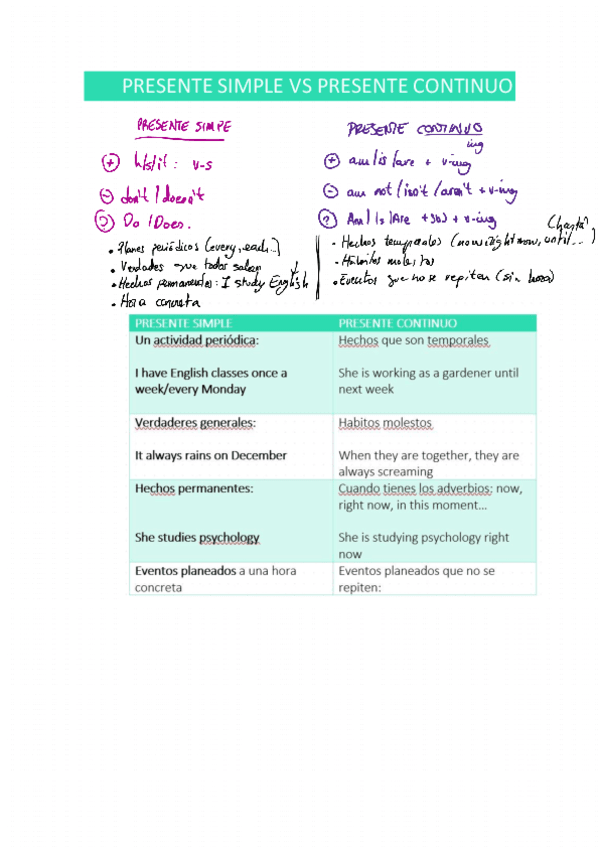 PRESENTE SIMPLE VS PRESENTE CONTINUO
PRESENTE SIMPE
+ h/s/it: v-s
- don't / doesn't
? Do / Does.
• Planes periódicos (every, each...)
• Verdades que todos saben
• Hechos permanentes: I study English
• Hora concreta
PRESENTE CONTINUO
ing
+ am/is/are + v-ing
- am not/isn't/aren't + v-ing
? Am/Is/Are + sbj + v-ing
(hasta)
- Hechos temporales (now, right now, until...)
• Hábitos molestos
• Eventos que no se repiten (sin hora)
PRESENTE SIMPLE
PRESENTE CONTINUO
Un actividad periódica:
I have English classes once a
week/every Monday
Hechos que son temporales
She is working as a gardener until
next week
Verdaderes generales:
It always rains on December
Habitos molestos
When they are together, they are
always screaming
Hechos permanentes:
She studies psychology
Cuando tienes los adverbios: now,
right now, in this moment...
She is studying psychology right
now
Eventos planeados a una hora
concreta
Eventos planeados que no se
repiten: